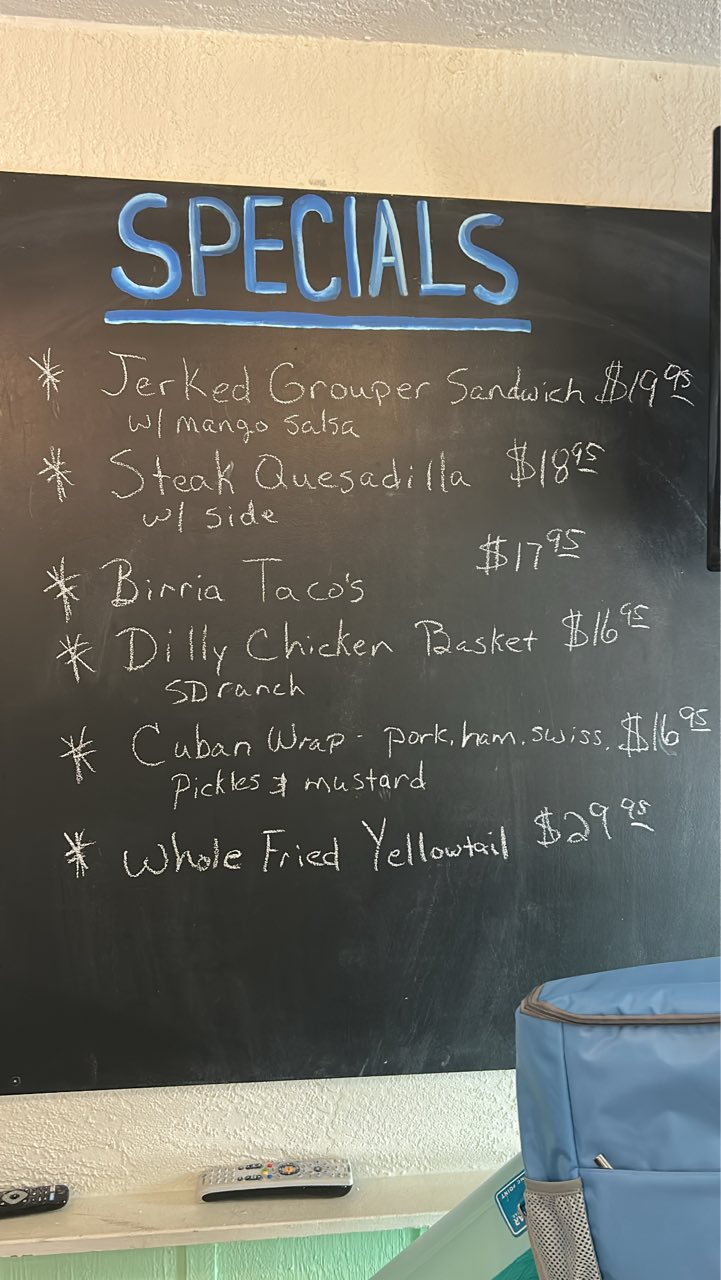 SPECIALS
* Jerked Grouper Sandwich $19.95
w/ mango salsa
* Steak Quesadilla $18.95
w/ side
* Birria Taco's $17.95
* Dilly Chicken Basket $16.95
SD ranch
* Cuban Wrap - pork, ham, swiss, $16.95
pickles & mustard
* Whole Fried Yellowtail $29.95